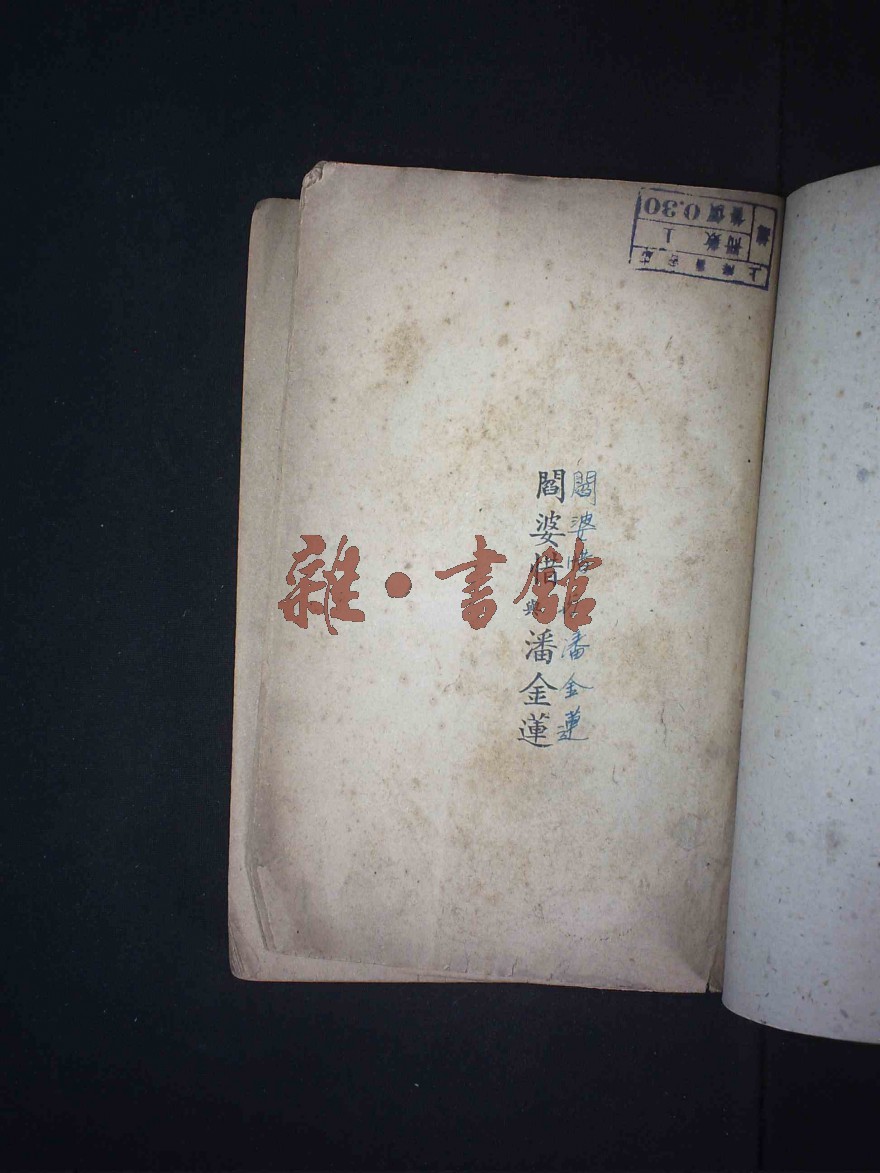 閻婆惜與潘金蓮
閻婆惜与潘金蓮
雜·書館
上海舊書店
冊數 1
售價 0.30